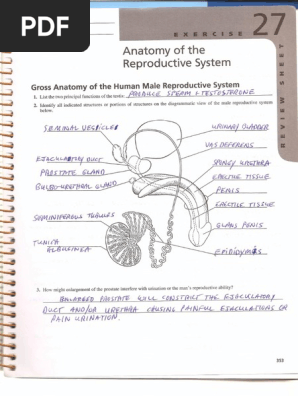 PDF
EXERCISE
27
Anatomy of the
Reproductive System
REVIEW SHEET
Gross Anatomy of the Human Male Reproductive System
1. List the two principal functions of the testis: PRODUCE SPERM & TESTOSTERONE
2. Identify all indicated structures or portions of structures on the diagrammatic view of the male reproductive system
below.
SEMINAL VESICLE
URINARY BLADDER
VAS DEFERENS
EJACULATORY DUCT
SPONGY URETHRA
PROSTATE GLAND
ERECTILE TISSUE
BULBO-URETHRAL GLAND
PENIS
ERECTILE TISSUE
SEMINIFEROUS TUBULES
GLANS PENIS
TUNICA
ALBUGINEA
EPIDIDYMIS
3. How might enlargement of the prostate interfere with urination or the man's reproductive ability?
ENLARGED PROSTATE WILL CONSTRICT THE EJACULATORY
DUCT AND/OR URETHRA CAUSING PAINFUL EJACULATIONS OR
PAIN URINATION.